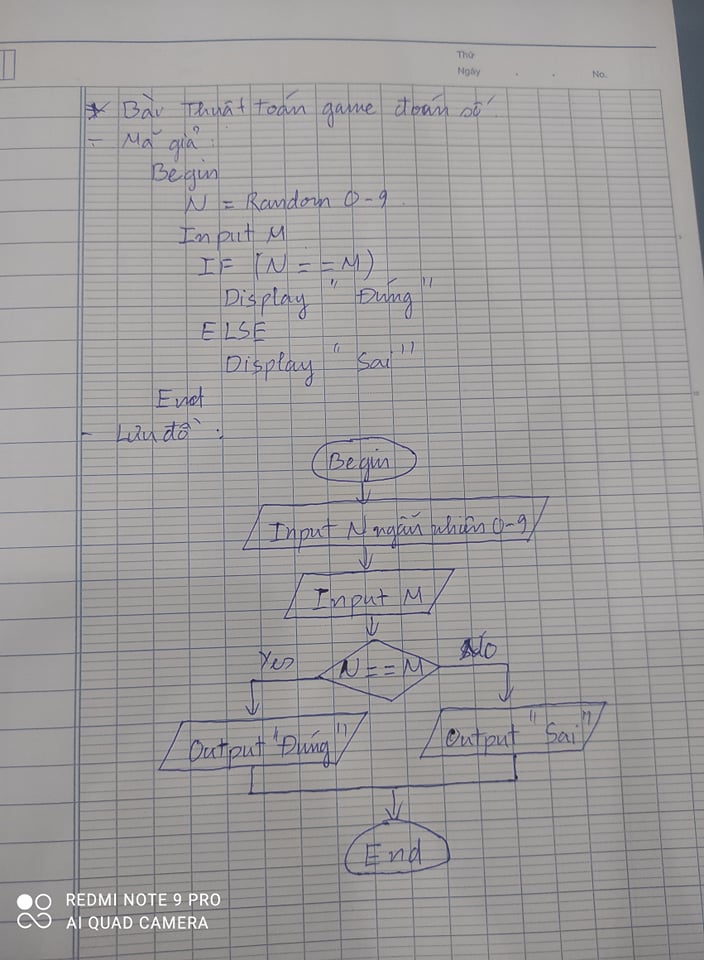 Thứ
Ngày . . No.
* Bài Thuật toán game đoán số.
- Mã giả:
Begin
N = Random 0-9.
Input M
IF (N == M)
Display "Đúng"
ELSE
Display "Sai"
End
- Lưu đồ:
Begin
Input N ngẫu nhiên 0-9
Input M
Yes N == M No
Output "Đúng" Output "Sai"
End
REDMI NOTE 9 PRO
AI QUAD CAMERA